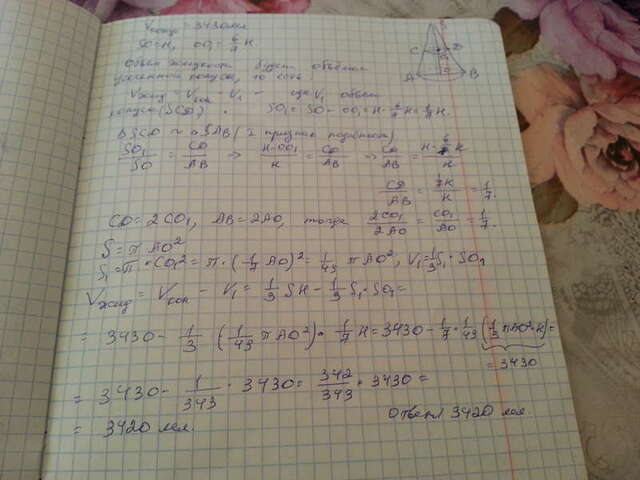 Vконус = 3430 мл
SO=H, OO₁ = 6/7 H.
Объем жидкости будет объёмом
усечённого конуса, то есть
Vжид = Vкон - V₁ - где V₁ объем
конуса (SCD). SO₁ = SO - OO₁ = H - 6/7 H = 1/7 H.
Δ SCD ~ Δ SAB (I признак подобности)
SO₁/SO = CD/AB ⇒ H-OO₁/H = CD/AB ⇒ CD/AB = H - 6/7 H/H
CD/AB = 1/7 H/H = 1/7.
CD = 2CO₁, AB = 2AO, тогда 2CO₁/2AO = CO₁/AO = 1/7.
S = π AO²
S₁ = π · CO₁² = π · (1/7 AO)² = 1/49 π AO², V₁ = 1/3 S₁ · SO₁
Vжид = Vкон - V₁ = 1/3 SH - 1/3 S₁ · SO₁ =
= 3430 - 1/3 (1/49 π AO²) · 1/7 H = 3430 - 1/7 · 1/49 (1/3 π AO² · H) =
= 3430
= 3430 - 1/343 · 3430 = 342/343 · 3430 =
= 3420 мл.
Ответ: 3420 мл.
C
D
A
B